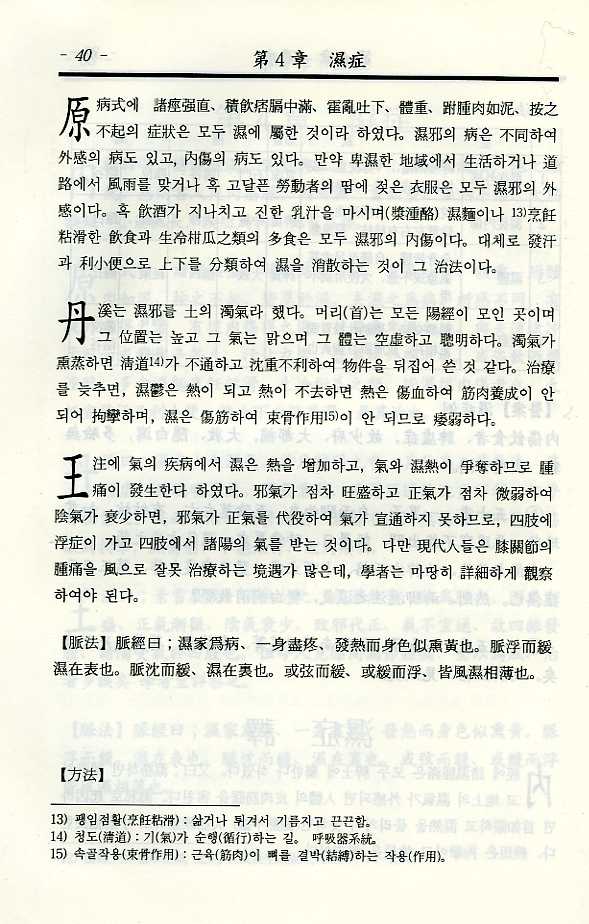 - 40 -
第4章 濕症
原病式에 諸痙强直、積飮痞膈中滿、霍亂吐下、體重、跗腫肉如泥、按之
不起의 症狀은 모두 濕에 屬한 것이라 하였다. 濕邪의 病은 不同하여
外感의 病도 있고, 內傷의 病도 있다. 만약 卑濕한 地域에서 生活하거나 道
路에서 風雨를 맞거나 혹 고달픈 勞動者의 땀에 젖은 衣服은 모두 濕邪의 外
感이다. 혹 飮酒가 지나치고 진한 乳汁을 마시며(漿湩酪) 濕麵이나 13)烹飪
粘滑한 飮食과 生冷柑瓜之類의 多食은 모두 濕邪의 內傷이다. 대체로 發汗
과 利小便으로 上下를 分類하여 濕을 消散하는 것이 그 治法이다.
丹溪는 濕邪를 土의 濁氣라 했다. 머리(首)는 모든 陽經이 모인 곳이며
그 位置는 높고 그 氣는 맑으며 그 體는 空虛하고 聰明하다. 濁氣가
熏蒸하면 淸道14)가 不通하고 沈重不利하여 物件을 뒤집어 쓴 것 같다. 治療
를 늦추면, 濕鬱은 熱이 되고 熱이 不去하면 熱은 傷血하여 筋肉養成이 안
되어 拘攣하며, 濕은 傷筋하여 束骨作用15)이 안 되므로 痿弱하다.
王注에 氣의 疾病에서 濕은 熱을 增加하고, 氣와 濕熱이 爭奪하므로 腫
痛이 發生한다 하였다. 邪氣가 점차 旺盛하고 正氣가 점차 微弱하여
陰氣가 衰少하면, 邪氣가 正氣를 代役하여 氣가 宣通하지 못하므로, 四肢에
浮症이 가고 四肢에서 諸陽의 氣를 받는 것이다. 다만 現代人들은 膝關節의
腫痛을 風으로 잘못 治療하는 境遇가 많은데, 學者는 마땅히 詳細하게 觀察
하여야 된다.
【脈法】脈經曰；濕家爲病、一身盡疼、發熱而身色似熏黃也。脈浮而緩
濕在表也。脈沈而緩、濕在裏也。或弦而緩、或緩而浮、皆風濕相薄也。
【方法】
13) 팽임점활(烹飪粘滑) : 삶거나 튀겨서 기름지고 끈끈함。
14) 청도(淸道) : 기(氣)가 순행(循行)하는 길。 呼吸器系統。
15) 속골작용(束骨作用) : 근육(筋肉)이 뼈를 결박(結縛)하는 작용(作用)。